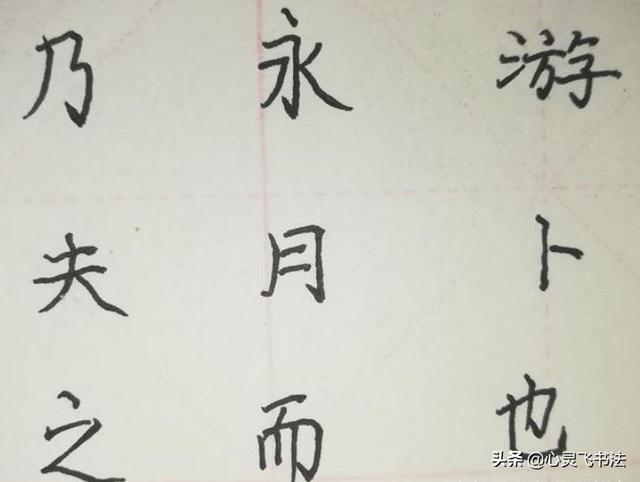 乃永游
夫月卜
之而也
头条 @心灵飞书法